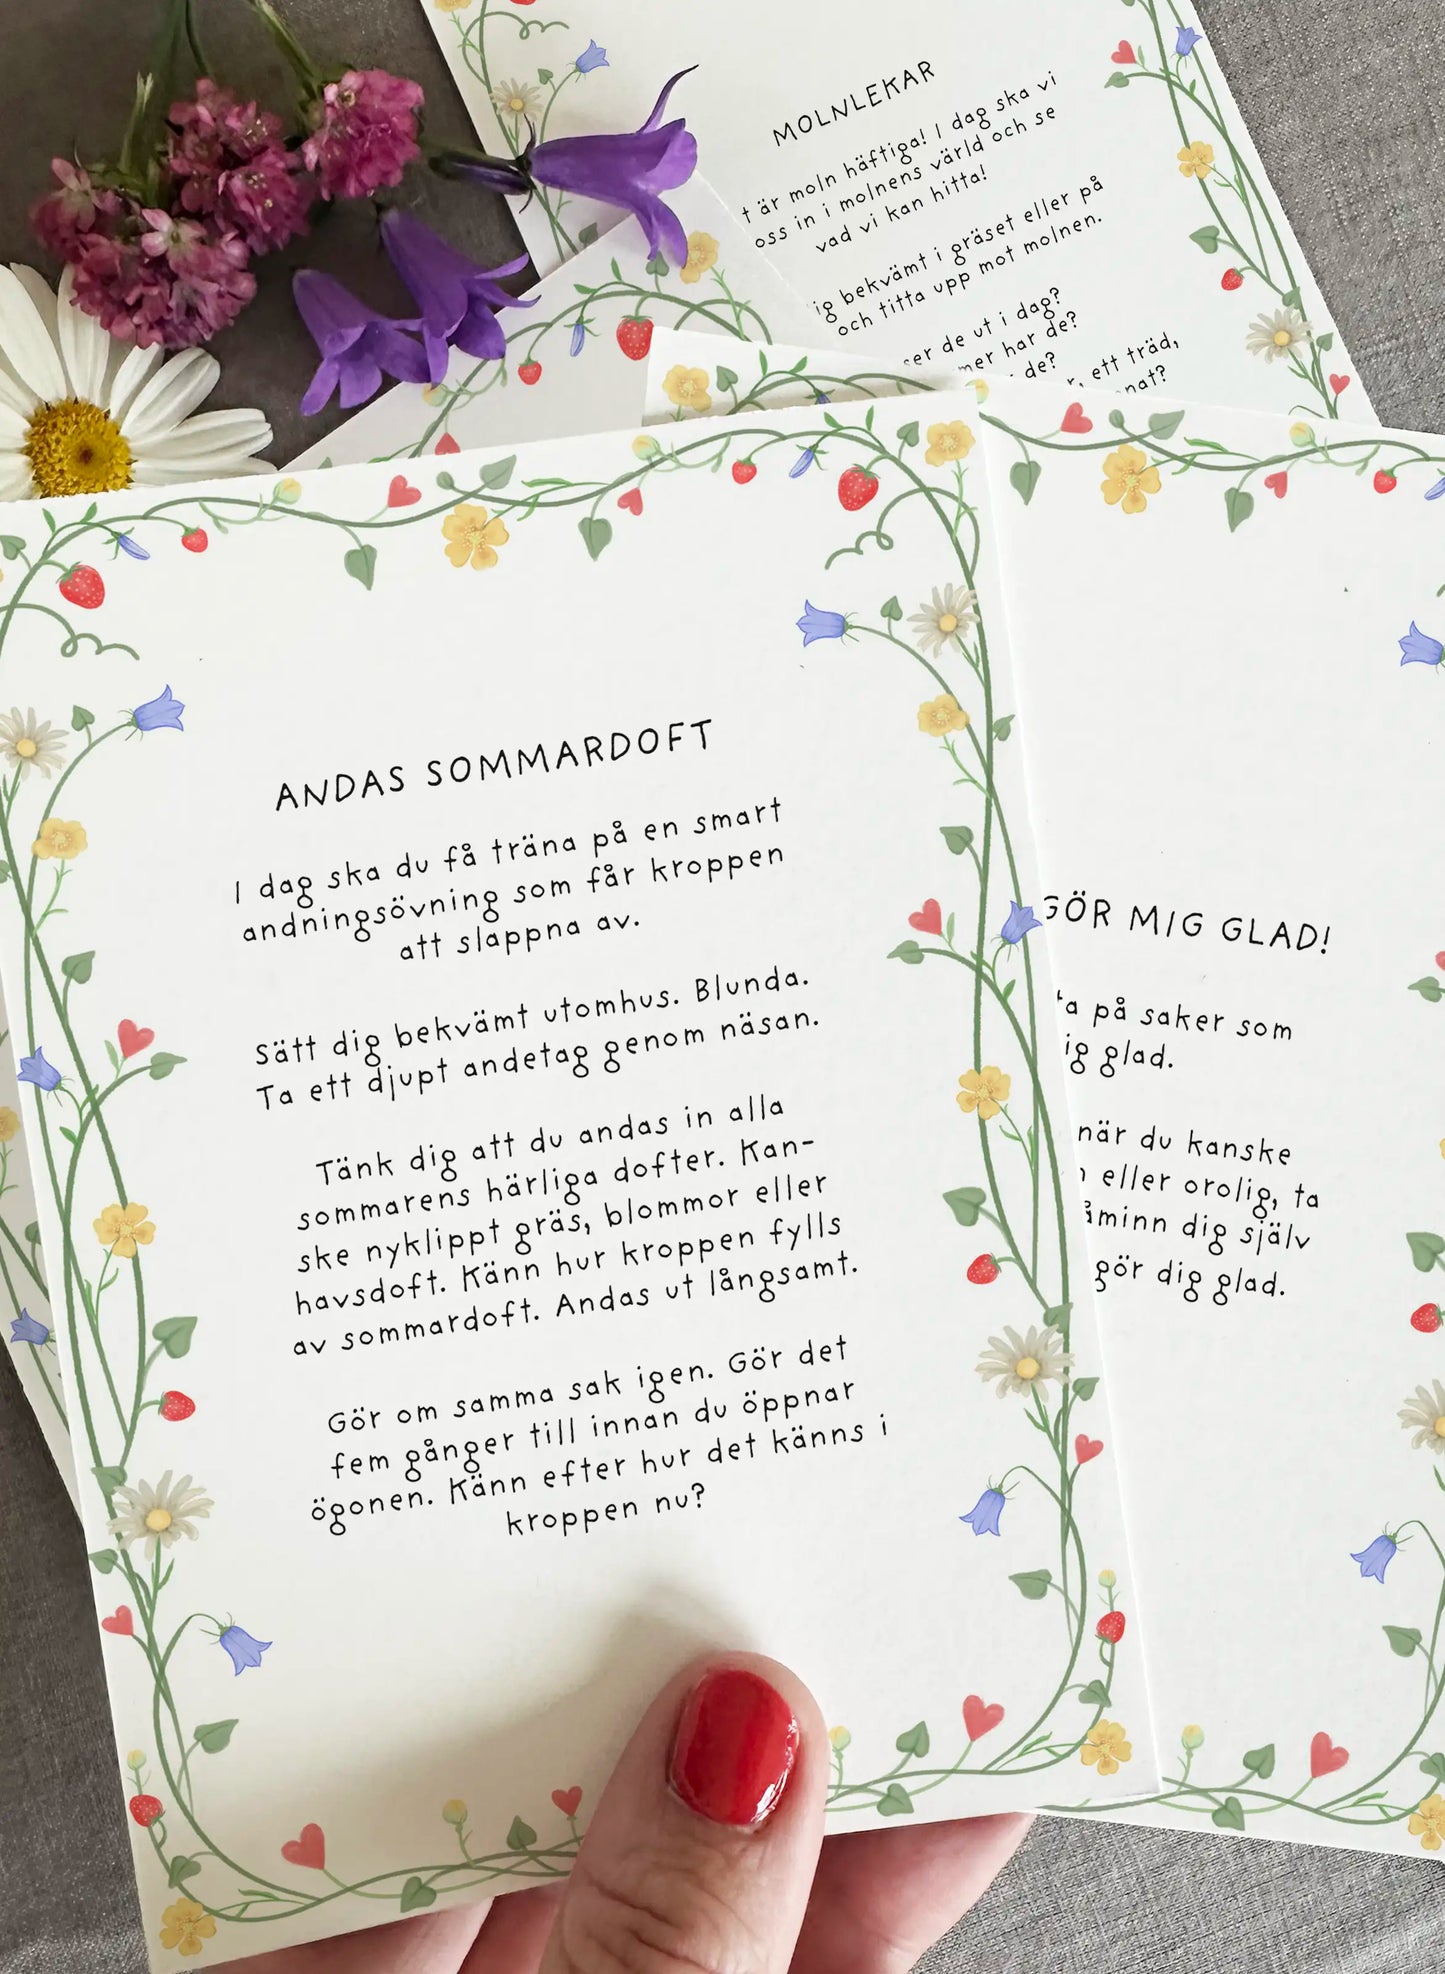 MOLNLEKAR
t är moln häftiga! I dag ska vi
oss in i molnens värld och se
vad vi kan hitta!
ig bekvämt i gräset eller på
och titta upp mot molnen.
ser de ut i dag?
mer har de?
de?
r, ett träd,
nat?
ANDAS SOMMARDOFT
I dag ska du få träna på en smart
andningsövning som får kroppen
att slappna av.
Sätt dig bekvämt utomhus. Blunda.
Ta ett djupt andetag genom näsan.
Tänk dig att du andas in alla
sommarens härliga dofter. Kan-
ske nyklippt gräs, blommor eller
havsdoft. Känn hur kroppen fylls
av sommardoft. Andas ut långsamt.
Gör om samma sak igen. Gör det
fem gånger till innan du öppnar
ögonen. Känn efter hur det känns i
kroppen nu?
GÖR MIG GLAD!
ta på saker som
ig glad.
när du kanske
eller orolig, ta
åminn dig själv
gör dig glad.